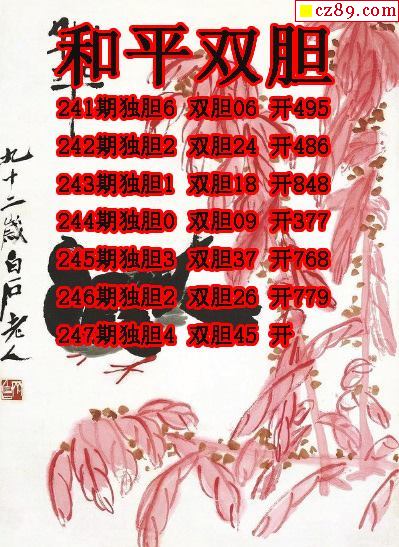 cz89.com
和平双胆
241期独胆6 双胆06 开495
242期独胆2 双胆24 开486
243期独胆1 双胆18 开848
244期独胆0 双胆09 开377
245期独胆3 双胆37 开768
246期独胆2 双胆26 开779
247期独胆4 双胆45 开
九十二岁白石老人